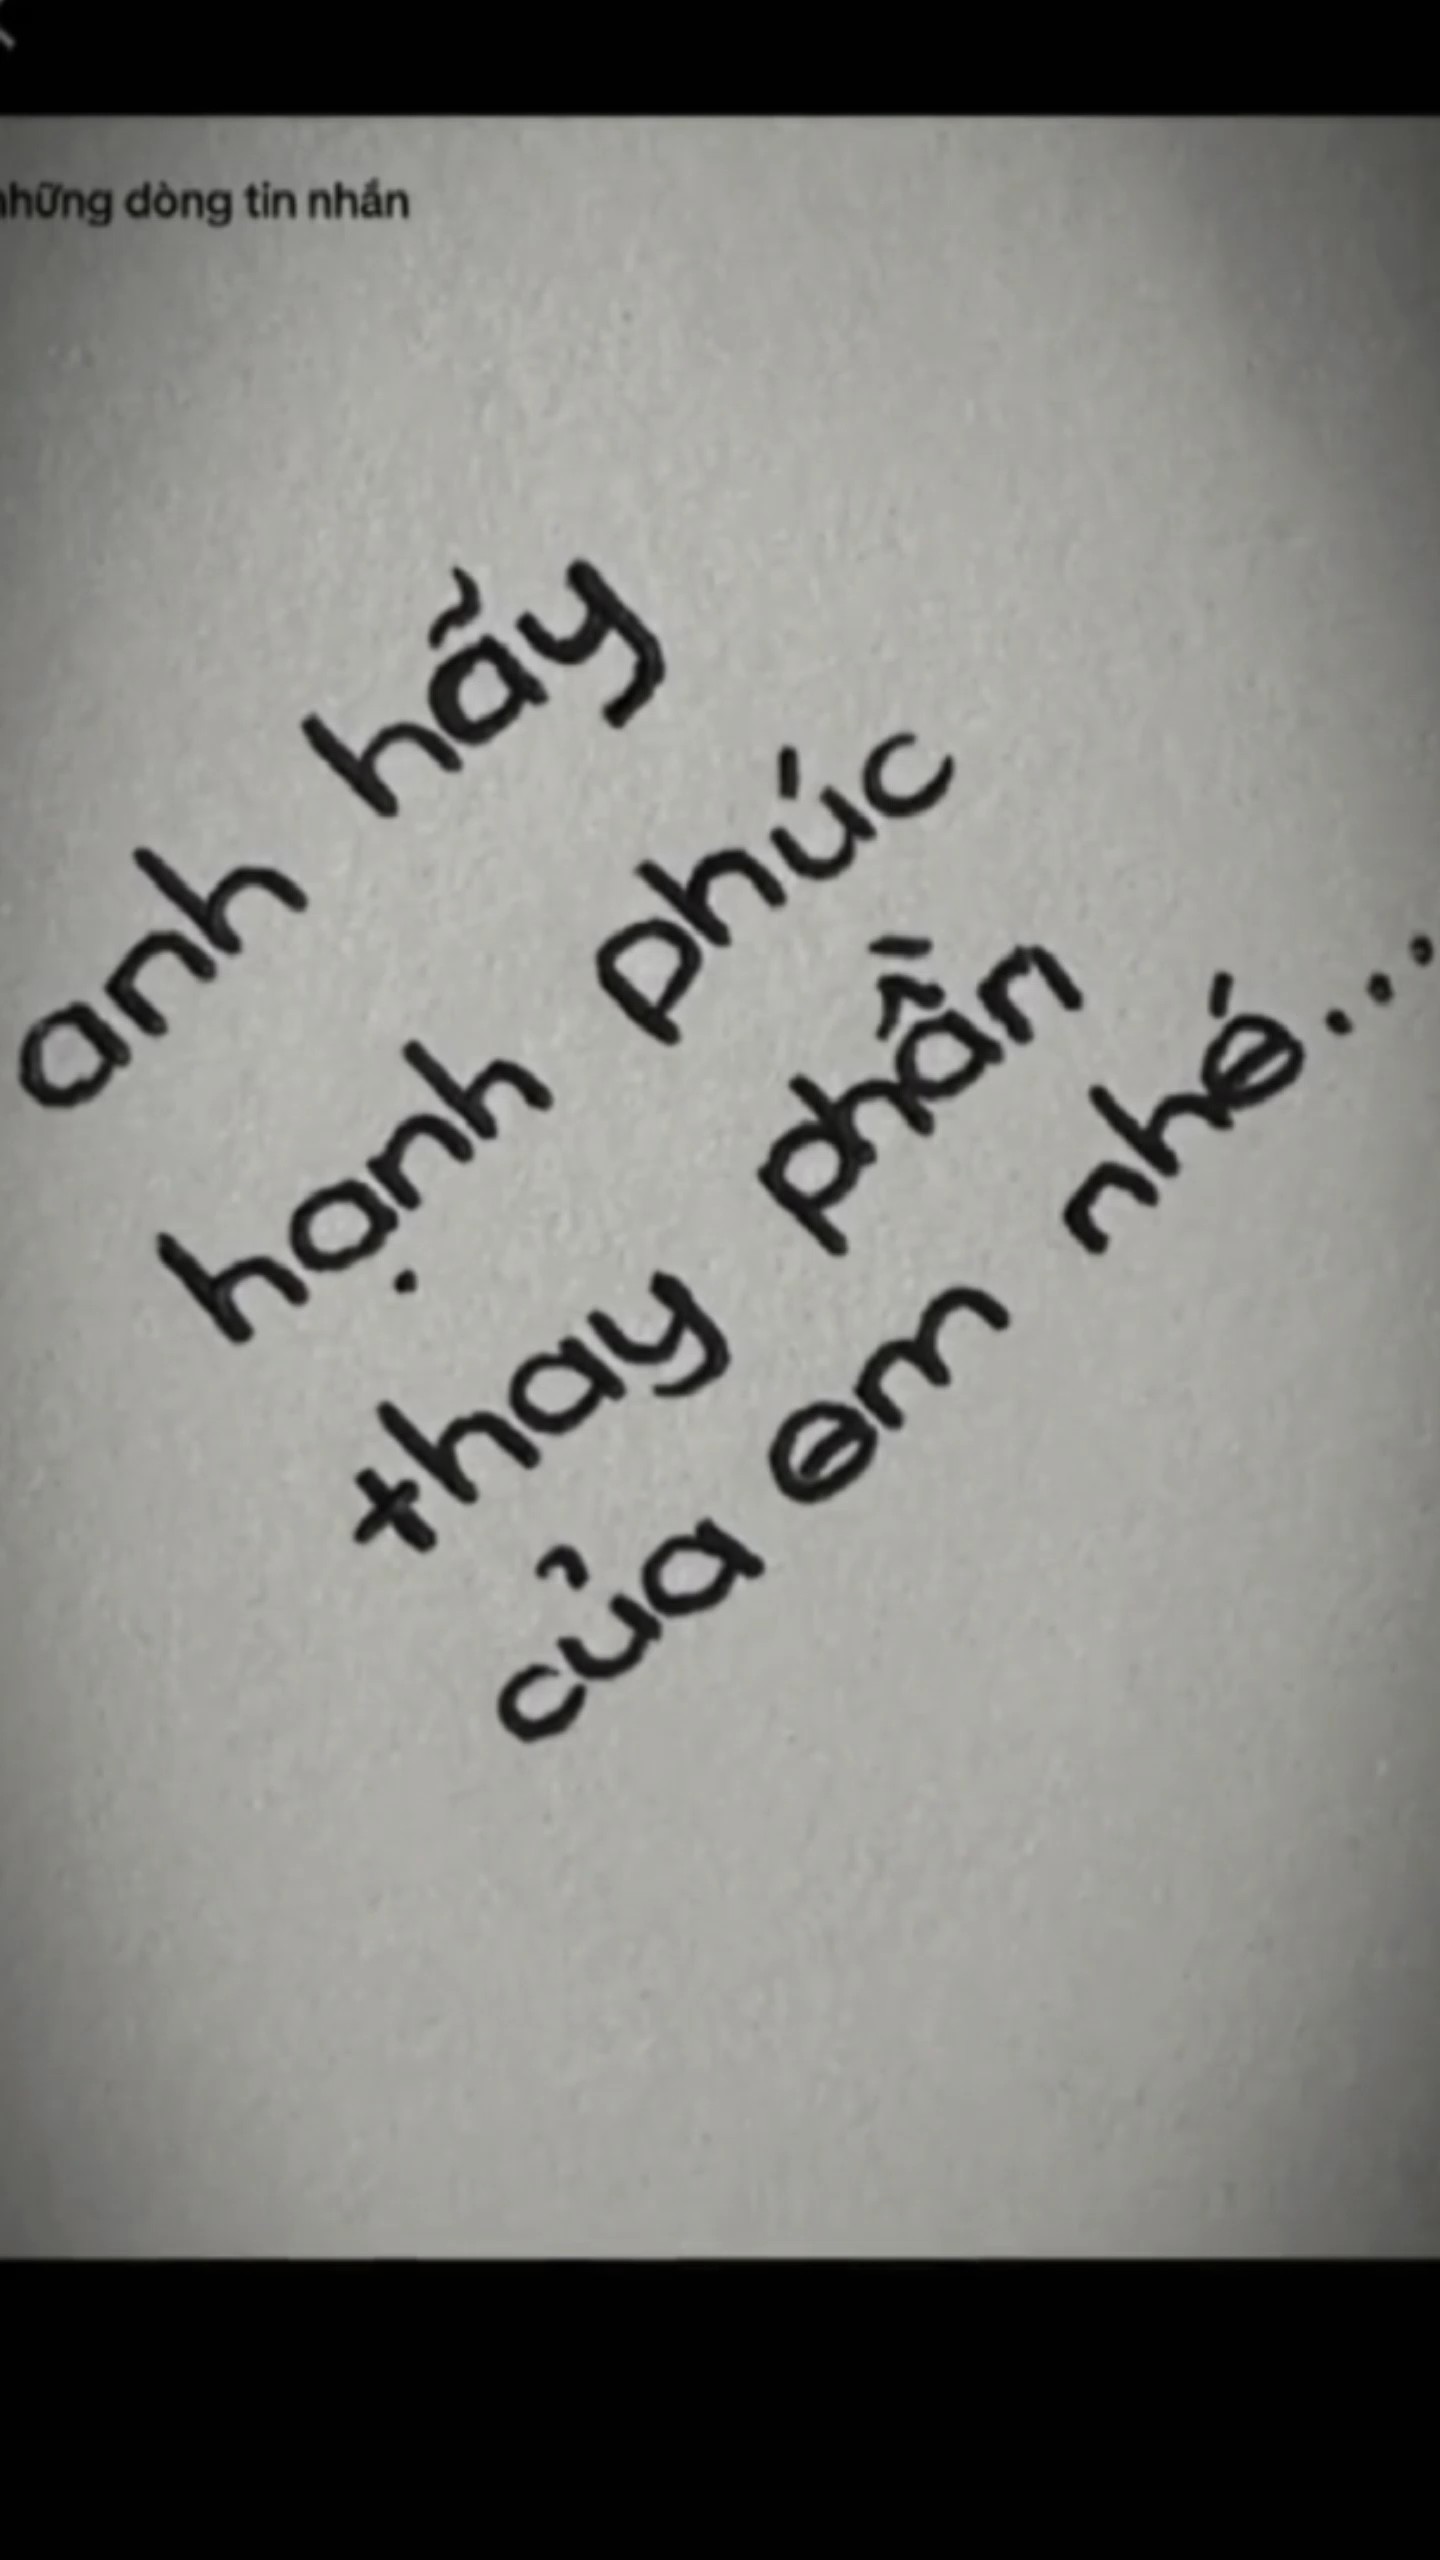 những dòng tin nhắn
anh hãy
hạnh phúc
thay phần
của em nhé...